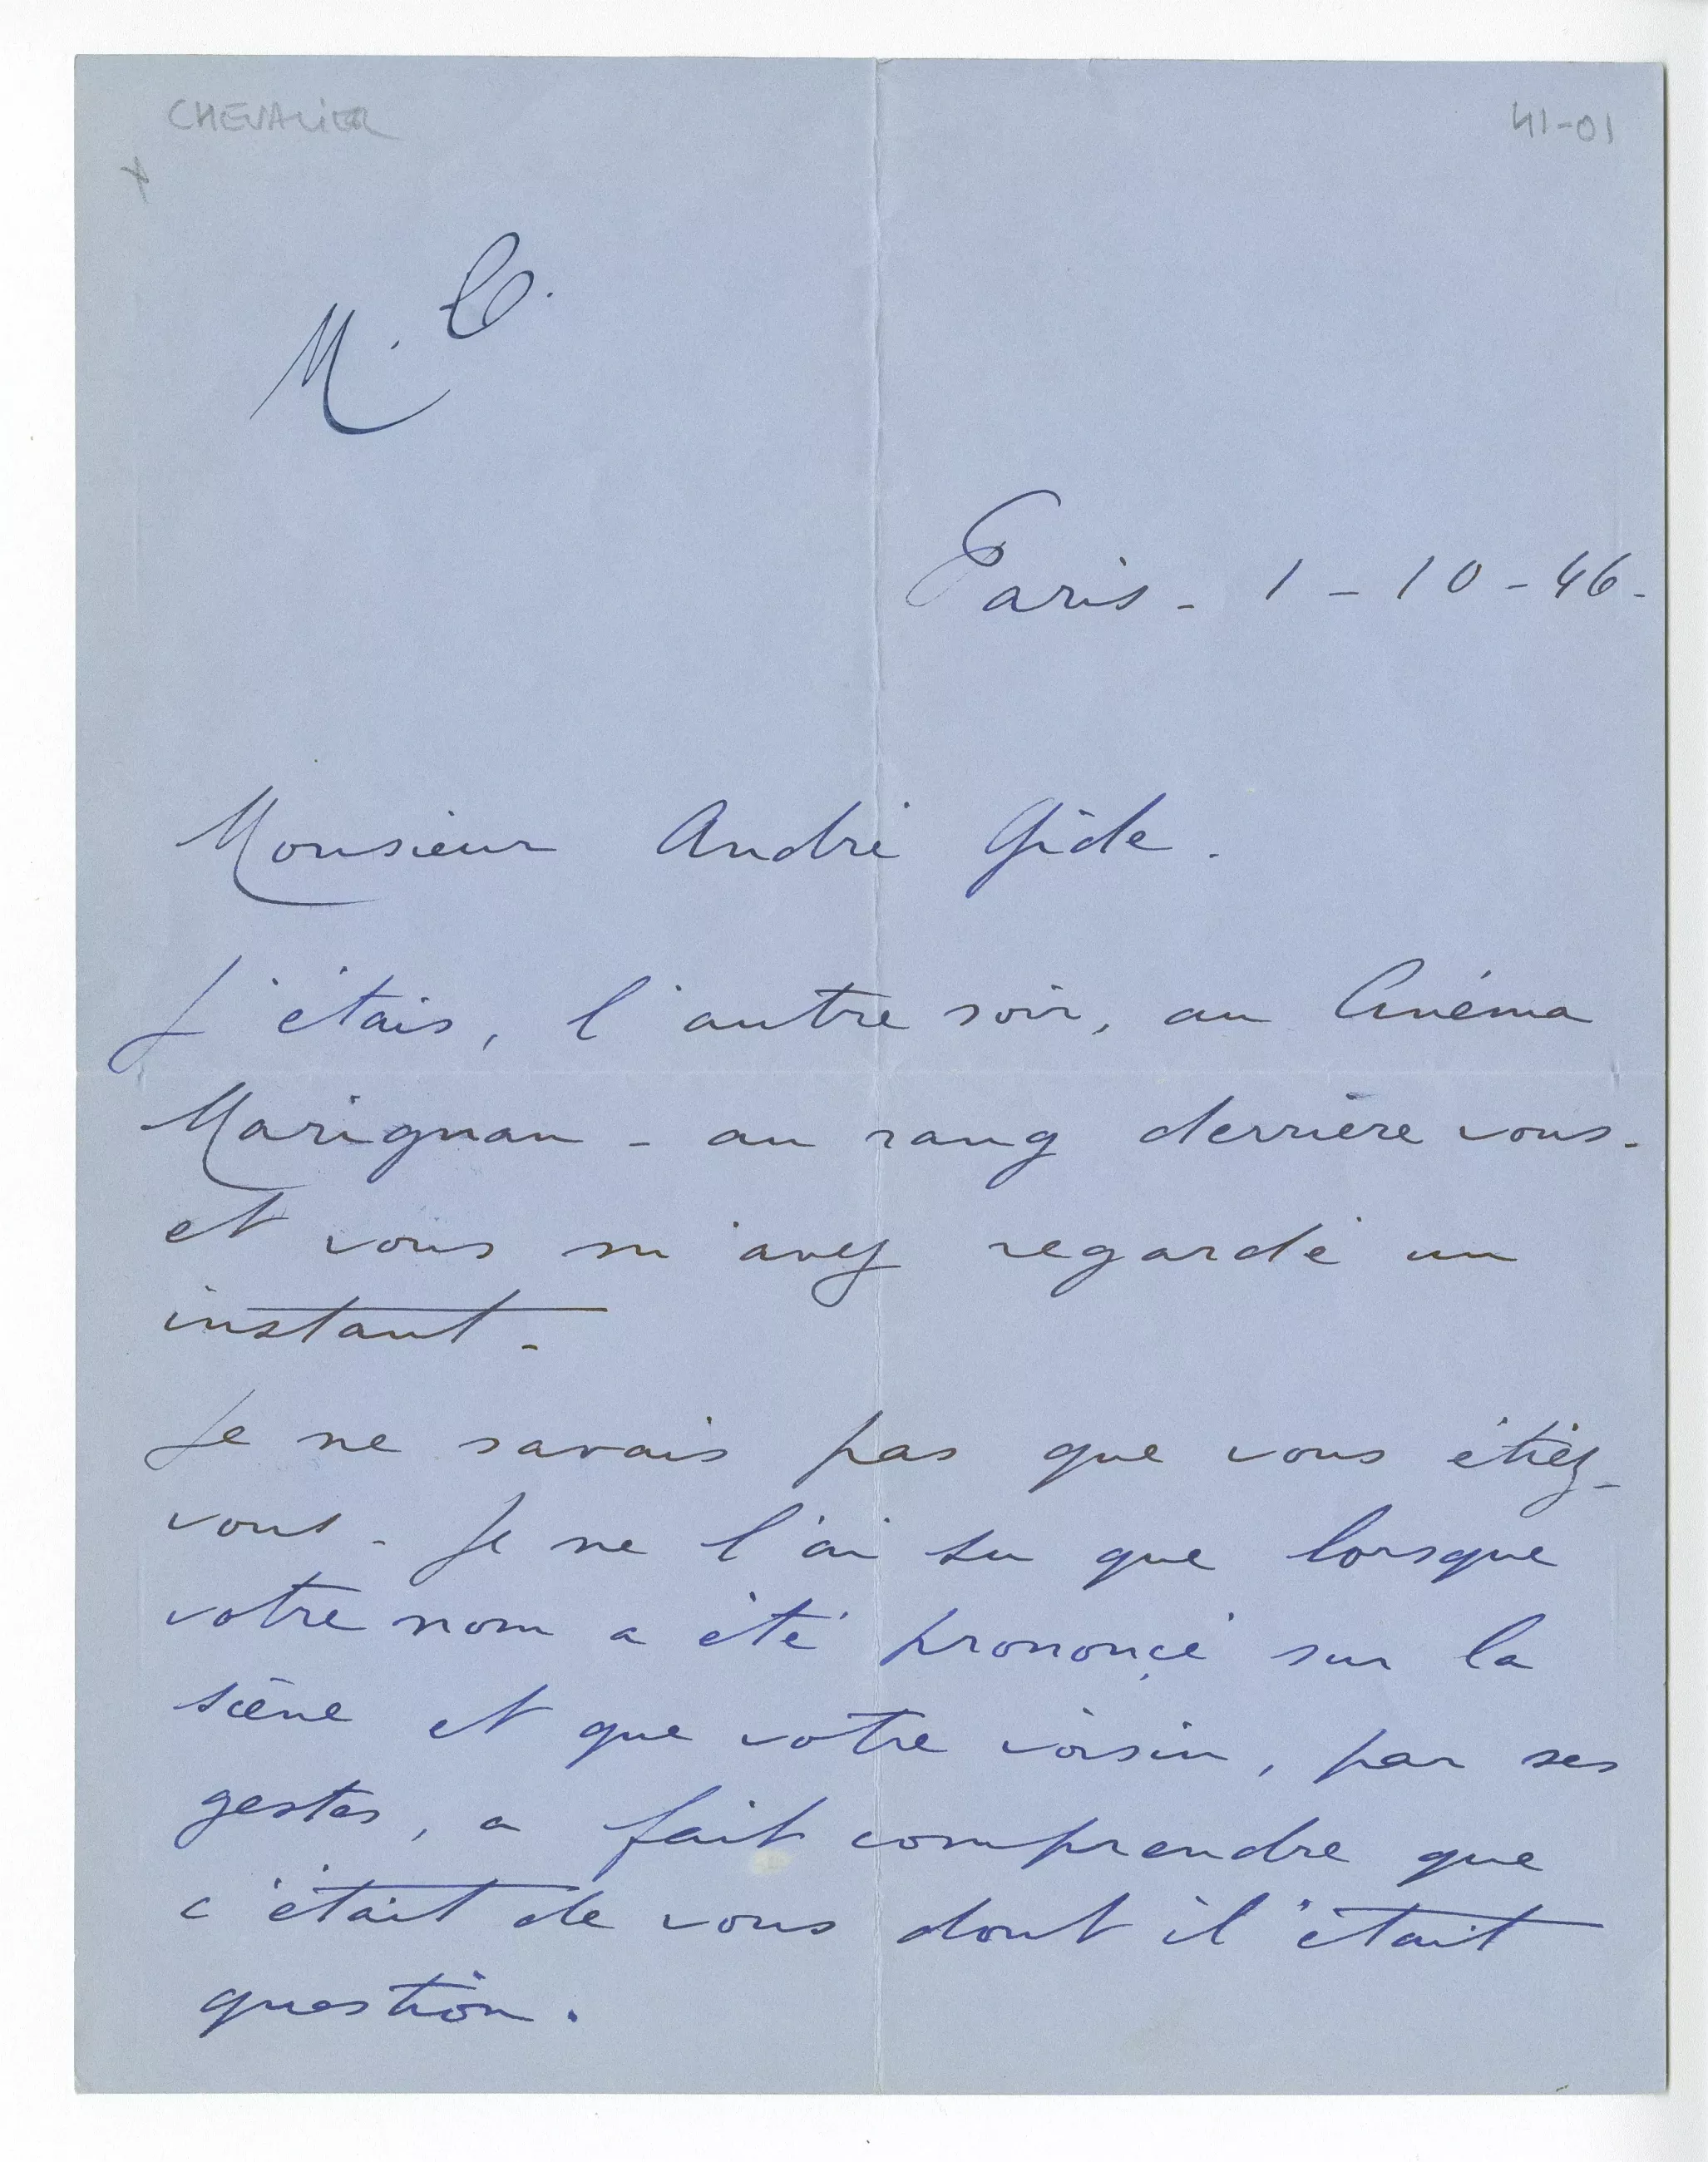 CHEVALIER
41-01
x
M. C.
Paris - 1 - 10 - 46 -
Monsieur André Gide.
J'étais, l'autre soir, au Cinéma
Marignan - au rang derrière vous -
et vous m'avez regardé un
instant -
Je ne savais pas que vous étiez -
vous - Je ne l'ai su que lorsque
votre nom a été prononcé sur la
scène et que votre voisin, par ses
gestes, a fait comprendre que
c'était de vous dont il était
question.